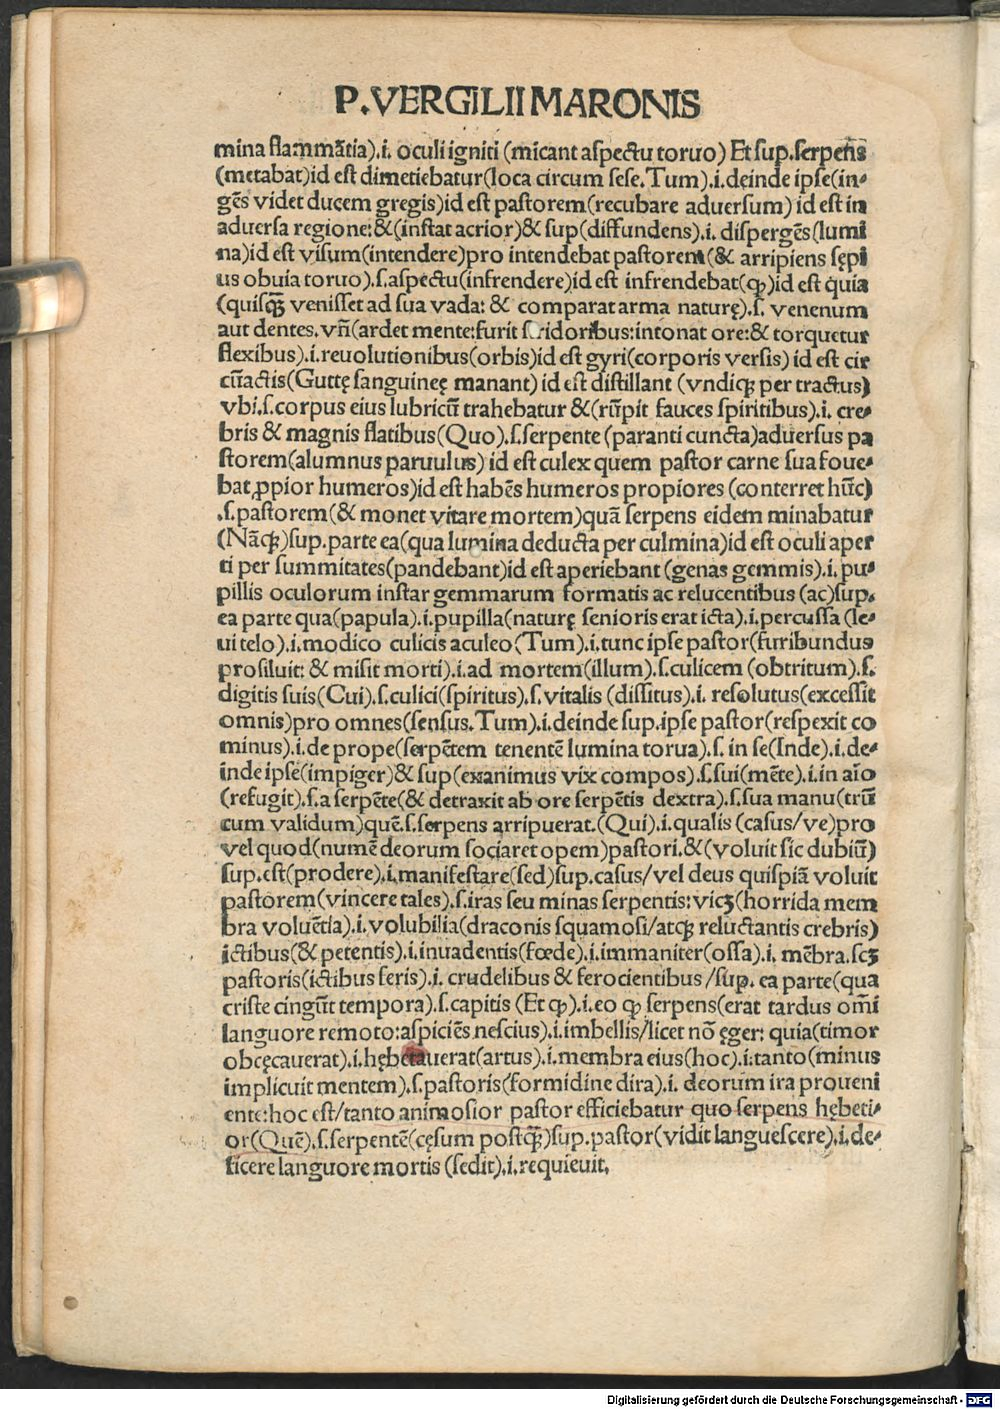 P.VERGILII MARONIS
mina flammātia).i. oculi igniti (micant aspectu toruo) Et sup.serpens
(metabat)id est dimetiebatur(loca circum sese.Tum).i.deinde ipse(in-
gēs videt ducem gregis)id est pastorem(recubare aduersum) id est in
aduersa regione:&(instat acrior)& sup(diffundens).i. dispergēs(lumi
na)id est visum(intendere)pro intendebat pastorem(& arripiens sępi
us obuia toruo).s.aspectu(infrendere)id est infrendebat(ꝙ)id est quia
(quisꝙ̄ venisset ad sua vada: & comparat arma naturę).s. venenum
aut dentes.vñ(ardet mente:furit stridoribus:intonat ore:& torquetur
flexibus).i.reuolutionibus(orbis)id est gyri(corporis versis) id est cir
cūactis(Guttę sanguineę manant) id est distillant (vndiqꝫ per tractus)
vbi.s.corpus eius lubricū trahebatur &(rūpit fauces spiritibus).i. cre-
bris & magnis flatibus(Quo).s.serpente (paranti cuncta)aduersus pa
storem(alumnus paruulus) id est culex quem pastor carne sua foue-
bat ꝓpior humeros)id est habēs humeros propiores (conterret hūc)
.s.pastorem(& monet vitare mortem)quā serpens eidem minabatur
(Nāqꝫ)sup.parte ea(qua lumina deducta per culmina)id est oculi aper
ti per summitates(pandebant)id est aperiebant (genas gemmis).i. pu-
pillis oculorum instar gemmarum formatis ac relucentibus (ac)sup.
ea parte qua(papula).i.pupilla(naturę senioris erat icta).i.percussa (le-
ui telo).i.modico culicis aculeo(Tum).i.tunc ipse pastor(furibundus
prosiluit: & misit morti).i.ad mortem(illum).s.culicem (obtritum).s.
digitis suis(Cui).s.culici(spiritus).s.vitalis (dissitus).i. resolutus(excessit
omnis)pro omnes(sensus.Tum).i.deinde sup.ipse pastor(respexit co
minus).i.de prope(serpētem tenentē lumina torua).s. in se(Inde).i.de-
inde ipse(impiger)& sup(exanimus vix compos).s.sui(mēte).i.in aīo
(refugit).s.a serpēte(& detraxit ab ore serpētis dextra).s.sua manu(trū
cum validum)quē.s.serpens arripuerat.(Qui).i.qualis (casus/ve)pro
vel quod(numē deorum sociaret opem)pastori.&(voluit sic dubiū)
sup.est(prodere).i.manifestare(sed)sup.casus/vel deus quispiā voluit
pastorem(vincere tales).s.iras seu minas serpentis:vicꝫ(horrida mem
bra voluētia).i.volubilia(draconis squamosi/atqꝫ reluctantis crebris)
ictibus(& petentis).i.inuadentis(fœde).i.immaniter(ossa).i. mēbra.scꝫ
pastoris(ictibus feris).i. crudelibus & ferocientibus/sup. ea parte(qua
criste cingūt tempora).s.capitis (Et ꝙ).i.eo ꝙ serpens(erat tardus om̄i
languore remoto:aspiciēs nescius).i.imbellis/licet nō ęger: quia(timor
obcęcauerat).i.hębetauerat(artus).i.membra eius(hoc).i.tanto(minus
implicuit mentem).s.pastoris(formidine dira).i. deorum ira proueni
ente:hoc est/tanto animosior pastor efficiebatur quo serpens hębeti-
or(Quē).s.serpentē(cęsum postꝙ̄)sup.pastor(vidit languescere).i.de-
ficere languore mortis (sedit).i.requieuit.
Digitalisierung gefördert durch die Deutsche Forschungsgemeinschaft - DFG